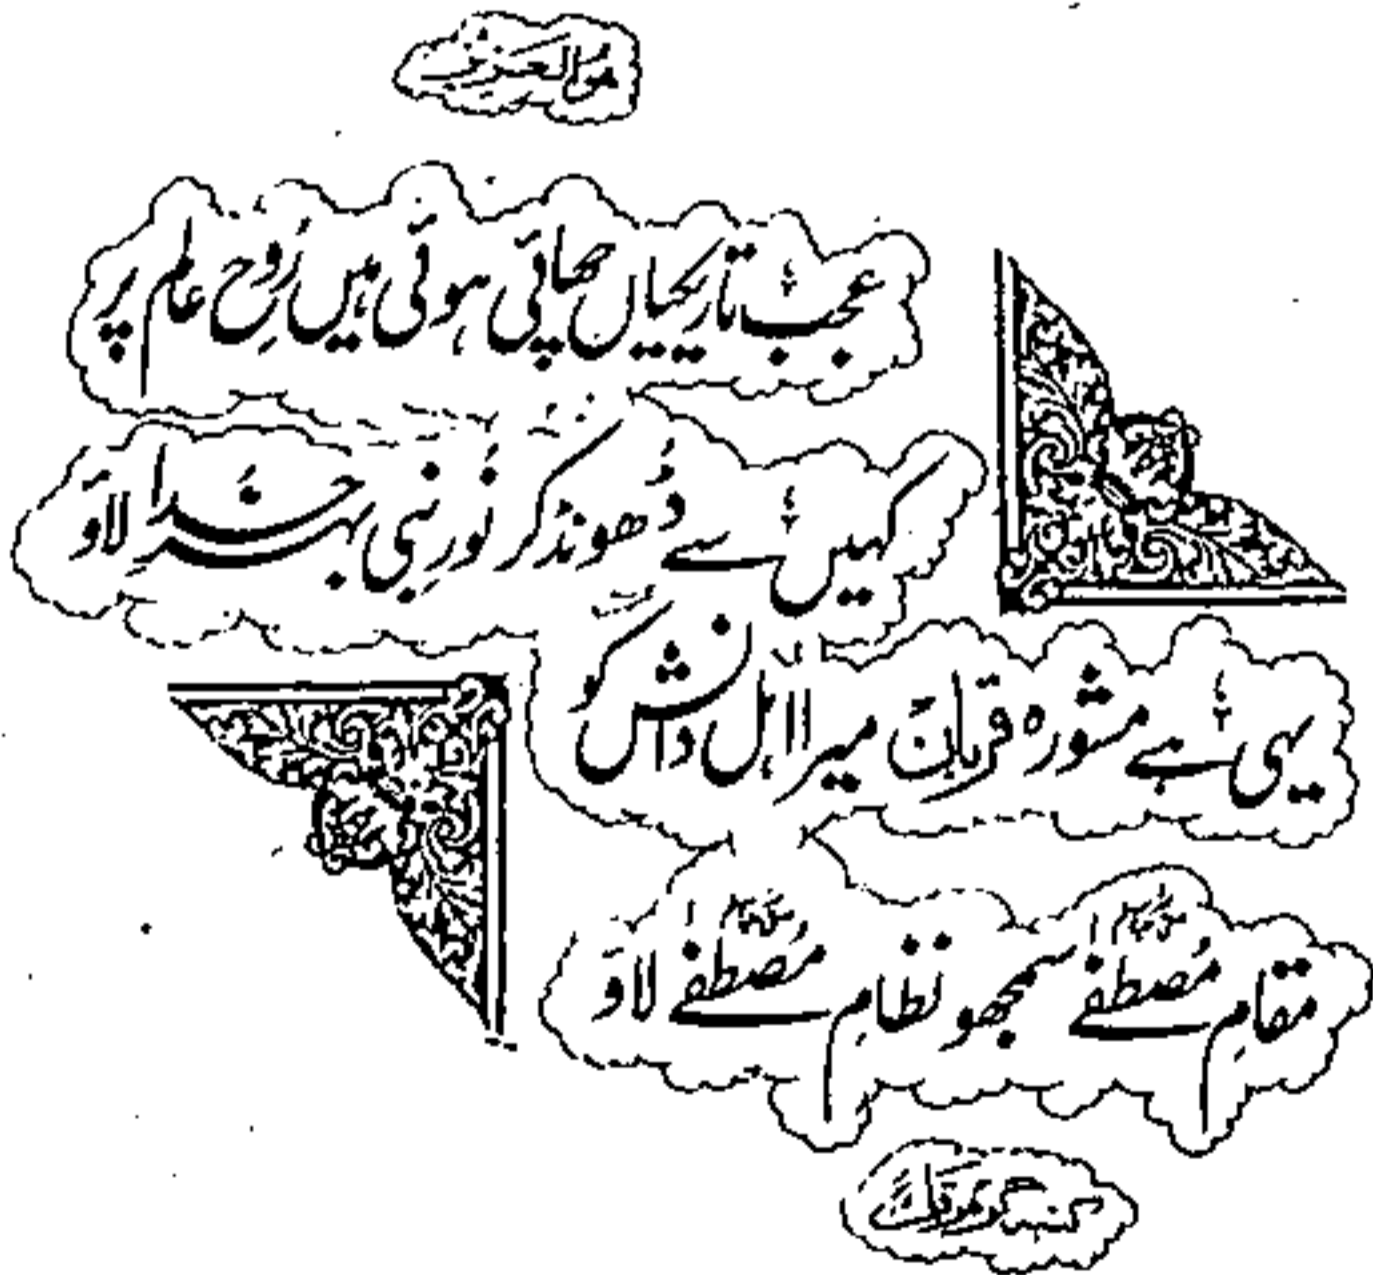 ھوالعزیز
عجب تاریکیاں چھائی ہوئی ہیں رُوحِ عالم پر
کہیں سے ڈھونڈ کر نُورِ نبی بہرِ خُدا لاؤ
یہی ہے مشورہ قربان میرا اہلِ دانش کو
مقامِ مُصطفےٰ سمجھو نظامِ مُصطفےٰ لاؤ